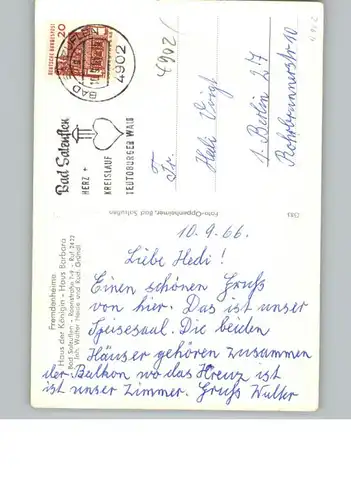 Liebe Hedi!
10.9.66.
Einen schönen Gruß
von hier. Das ist unser
Speisesaal. Die beiden
Häuser gehören zusammen
der Balkon wo das Kreuz ist
ist unser Zimmer. Gruß Walter
Fremdenheime
Haus der Königin - Haus Barbara
Bad Salzuflen - Roonstraße 7-9 - Ruf 2423
Foto-Oppenheimer, Bad Salzuflen
Bad Salzuflen
HERZ +
KREISLAUF
TEUTOBURGER WALD
DEUTSCHE BUNDESPOST
20
4902
BAD
4902/
Fr.
Hedi Voigt
1 Berlin 27